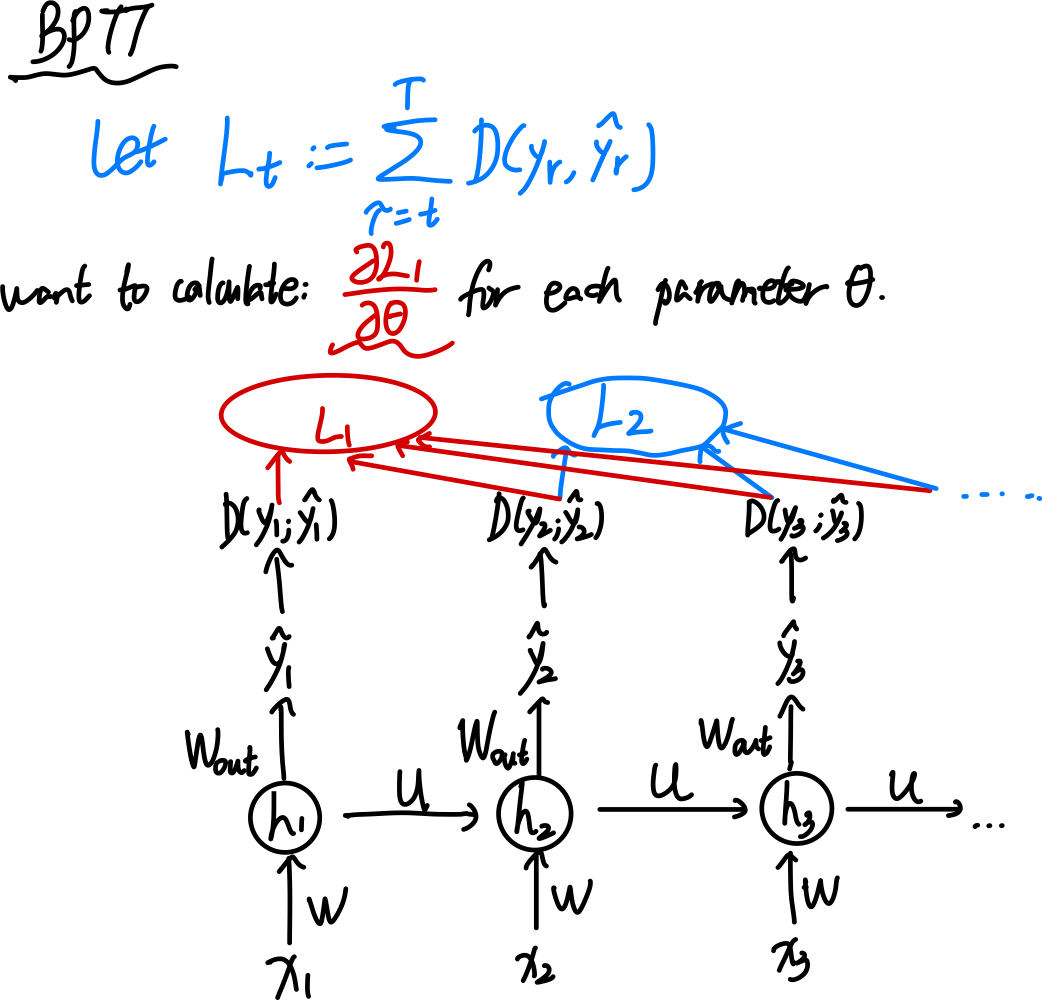 BPTT
Let L_t := \sum_{τ=t}^{T} D(y_τ, ŷ_τ)
want to calculate: ∂L_1/∂θ for each parameter θ.
L_1 L_2
D(y_1; ŷ_1) D(y_2; ŷ_2) D(y_3; ŷ_3) .....
ŷ_1 ŷ_2 ŷ_3
W_out W_out W_out
U U U
h_1 h_2 h_3 ...
W W W
x_1 x_2 x_3